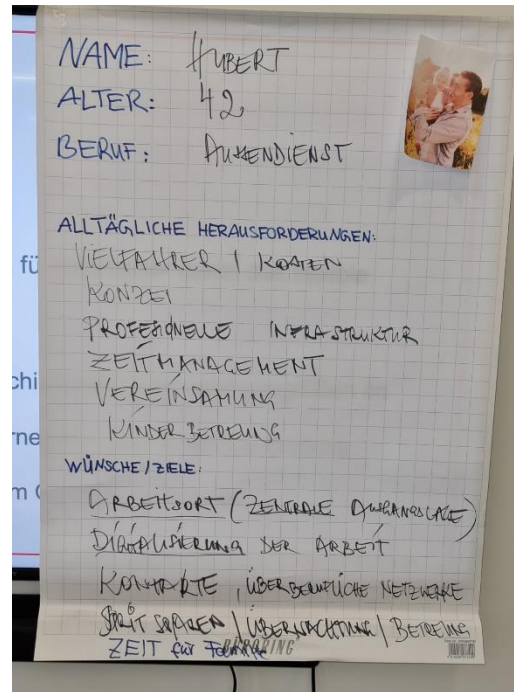 NAME: HUBERT
ALTER: 42
BERUF: AUßENDIENST
ALLTÄGLICHE HERAUSFORDERUNGEN:
VIELFAHRER / KOSTEN
PROFESIONELLE INFRASTRUKTUR
ZEITMANAGEMENT
VEREINSAMUNG
KINDERBETREUNG
WÜNSCHE/ZIELE:
ARBEITSORT (ZENTRALE AUSGANGSLAGE)
DIGITALISIERUNG DER ARBEIT
KONTAKTE, ÜBERBERUFLICHE NETZWERKE
SPRIT SPAREN / ÜBERNACHTUNG / BETREUNG
ZEIT für Familie
BÜRORING
fü
chi
rne
m